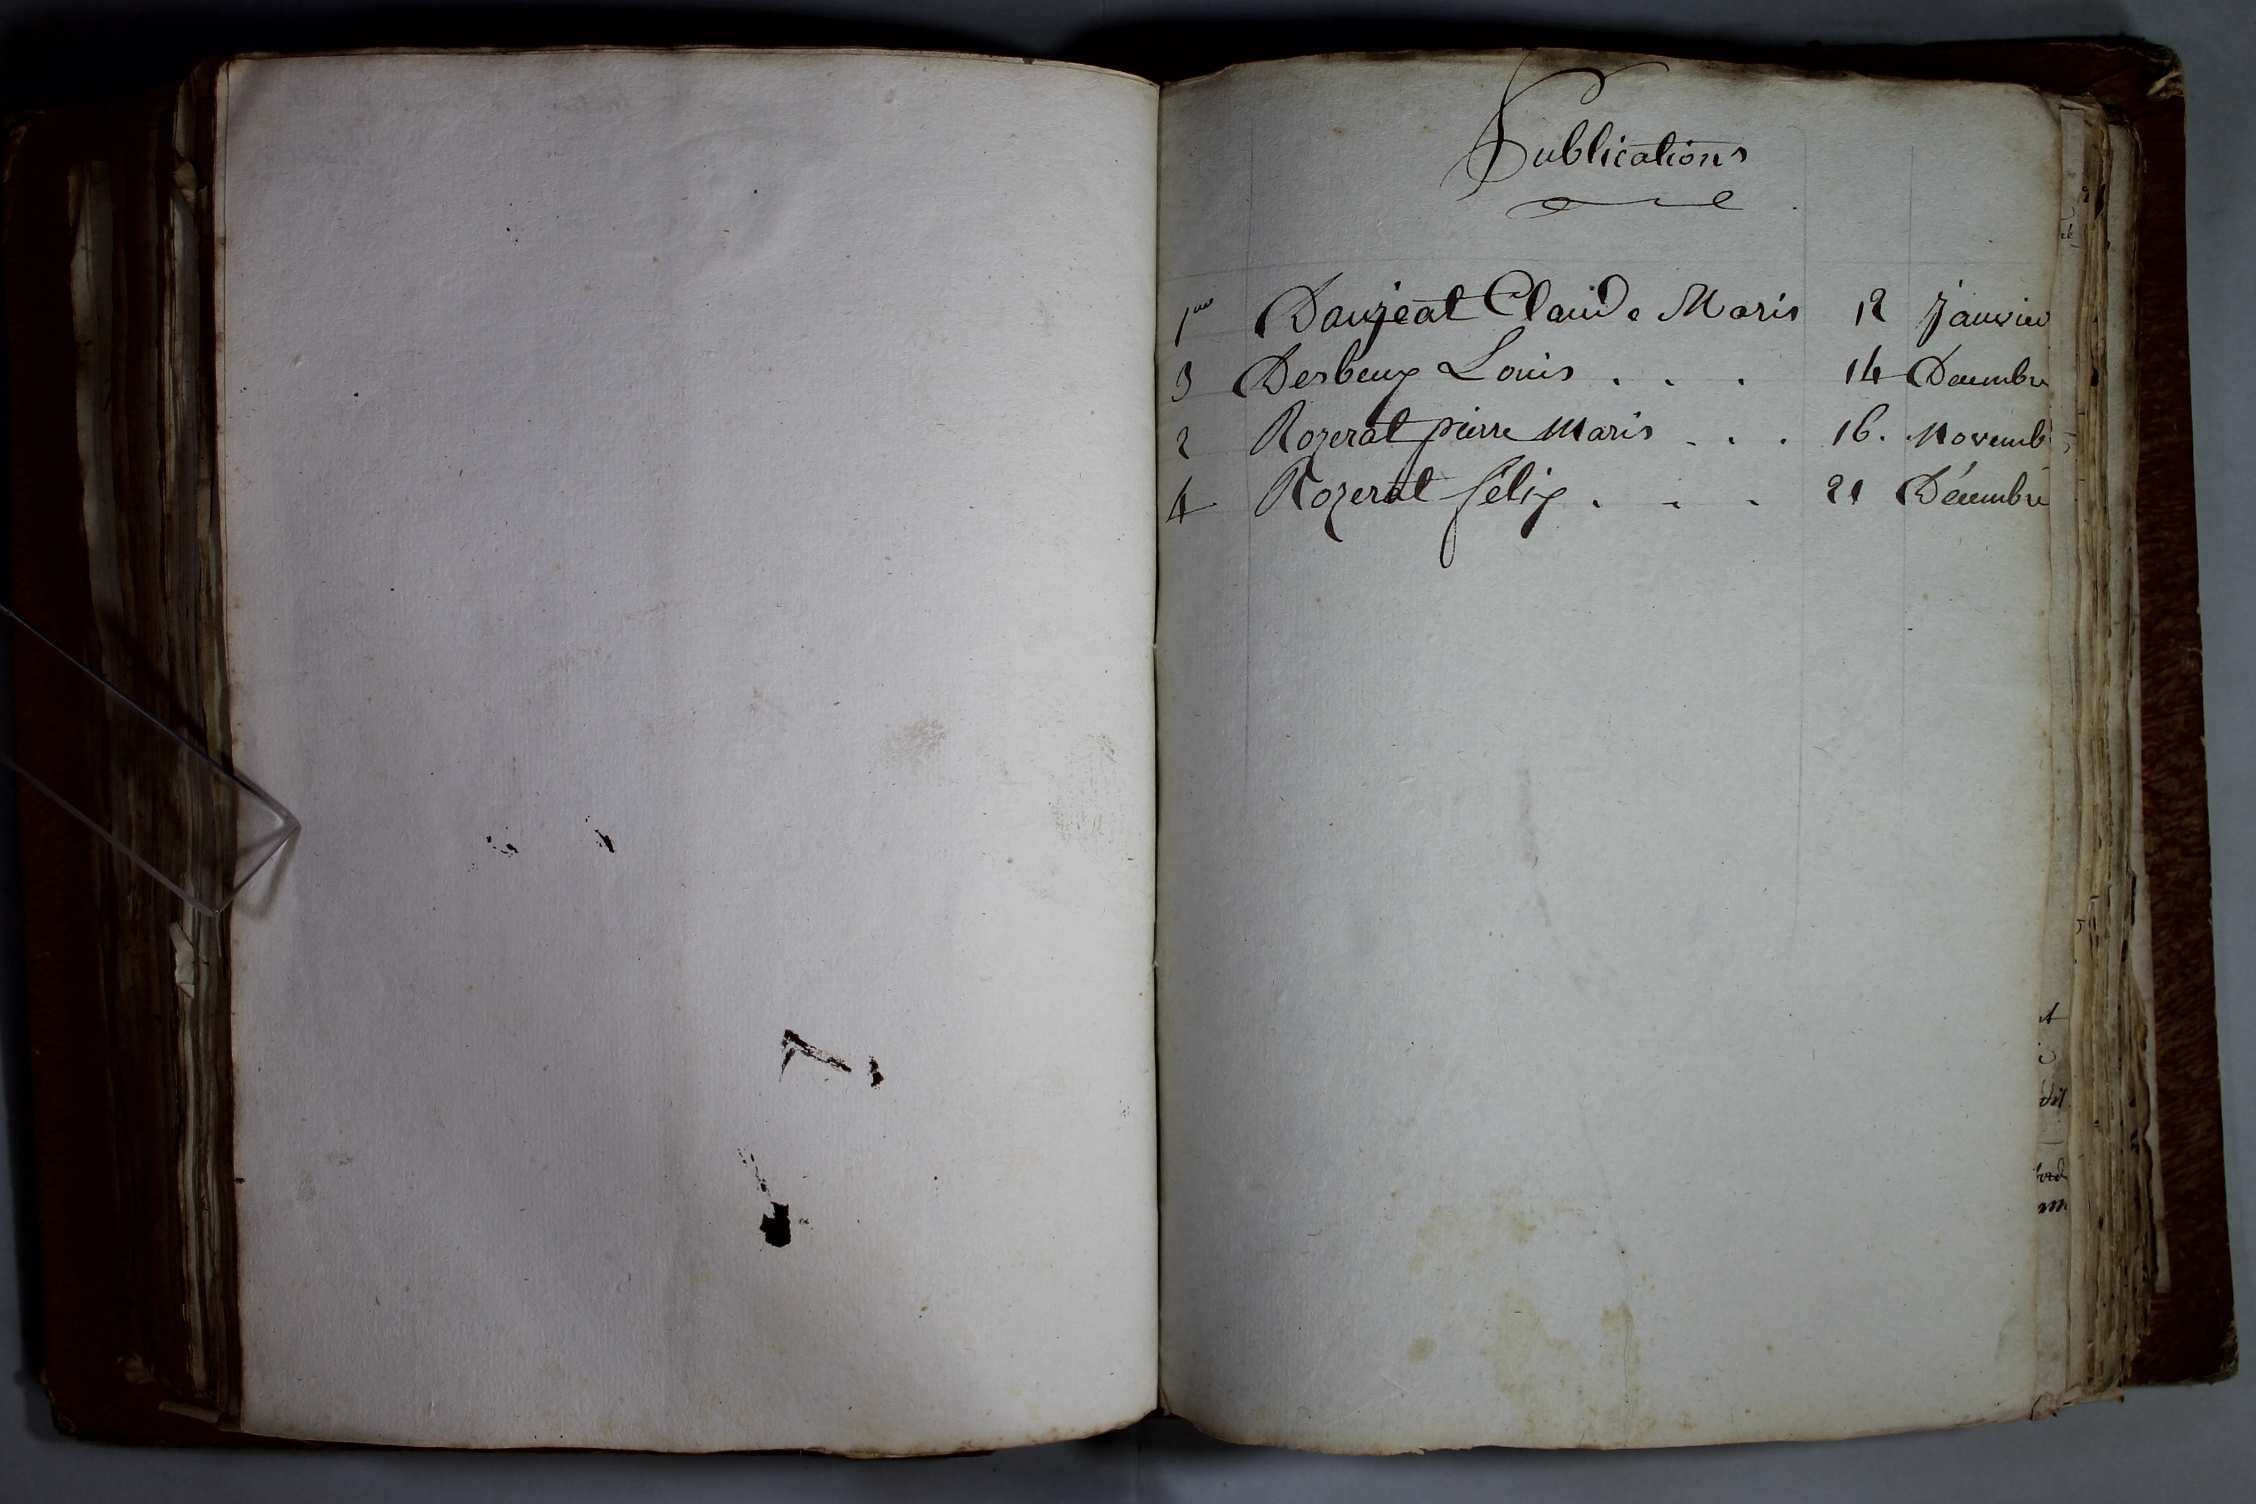 Publications
1er Danjeat Claude Marie 12 Janvier
3 Desbeux Louis . . . 14 Decembre
2 Rozerat pierre Marie . . . 16. Novemb
4 Rozerat félix . . . 21 Décembre